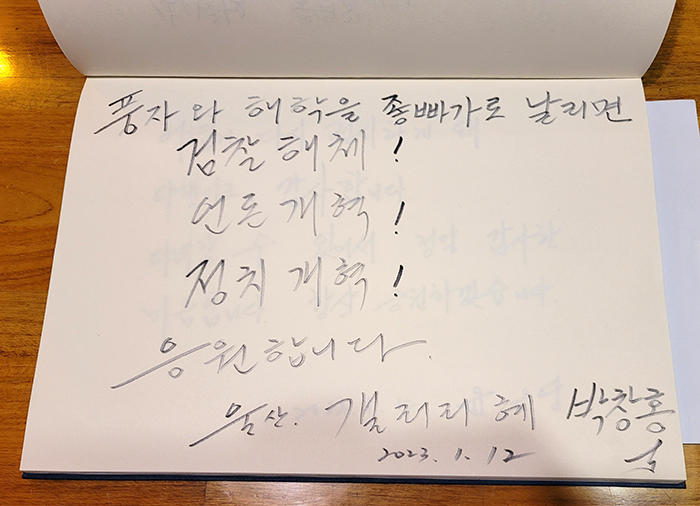 풍자와 해학을 쫑빠가로 날리면
검찰해체!
언론개혁!
정치개혁!
응원합니다.
울산. 갤러리 혜 박창홍
2023. 1. 12